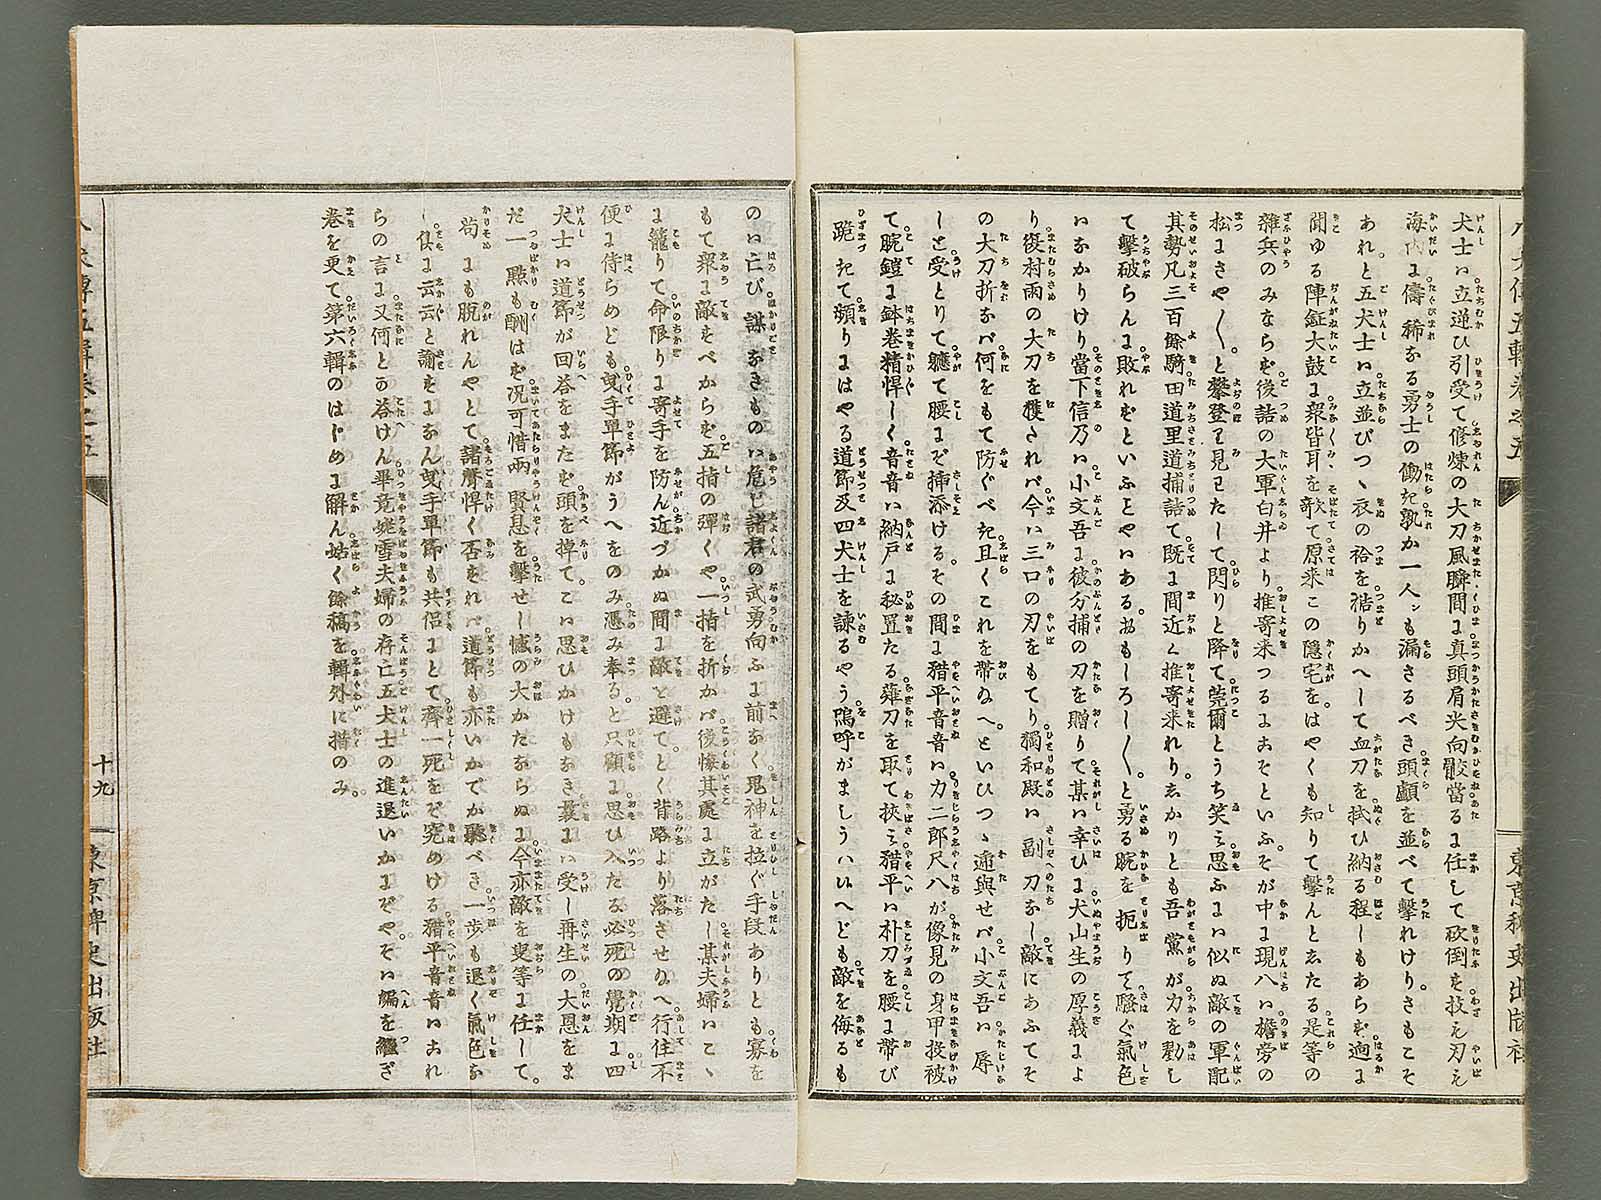 犬士ハ立迎ひ引受て修煉の大刀風瞬間に真頭肩尖向骰當るに任して砍倒を技も刃も
海内に儔稀なる勇士の働き孰か一人ンも漏さるべき頭顱を並べて撃れけりさもこそ
あれと五犬士ハ立並びつゝ衣の袷を褶りかへして血刀を拭ひ納る程しもあらず逈に
聞ゆる陣鉦大鼓に衆皆耳を欹て原来この隠宅をはやくも知りて撃んとゑたる是等の
雜兵のみならず後詰の大軍白井より推寄来つるよなそといふぞが中に現八ハ檐旁の
松にさや〳〵と攀登り見わたして閃りと降て莞爾とうち笑ミ思ふにハ似ぬ敵の軍配
其勢凡三百餘騎田道里道捕詰て既に間近く推寄来れりゑかりとも吾黨が力を勠し
て擊破らんに敗れずといふことやハあるおもしろし〳〵と勇る腕を扼りて騒ぐ氣色
ハなかりけり當下信乃ハ小文吾に彼分捕の刀を贈りて某ハ幸ひに犬山生の厚義によ
り復村雨の大刀を獲されバ今ハ三口の刃をもてり獨和殿ハ副刀なし敵にあふてそ
の大刀折なバ何をもて防ぐべき且くこれを帯ねへといひつゝ逓與せバ小文吾ハ辱
しと受とりて軈て腰にぞ挿添けるその間に猎平音音ハ力二郎尺八が像見の身甲投被
て腕鎧に鉢巻精悍しく音音ハ納戸に秘置たる薙刀を取て挾ミ猎平ハ朴刀を腰に帯び
跪きて頻りにはやる道節及四犬士を諫るやう嗚呼がましうハいへども敵を侮るも
のハ亡び謀なきものハ危し諸君の武勇向ふに前なく鬼神を拉ぐ手段ありとも寡を
もて衆に敵をべからず五指の彈くや一指を折かバ後慘其處に立がたし某夫婦ハこゝ
に籠りて命限りに寄手を防ん近づかぬ間に敵を避てとく背路より落させねへ行住不
便に侍らめども曳手單節がうへをのみ憑み奉ると只顧に思ひ入たる必死の覺期に四
犬士ハ道節が回荅をまたず頭を掉てこハ思ひかけもなき曩にハ受し再生の大恩をま
だ一點も酬はず况可惜両賢息を擊せし憾の大かたならぬに今亦敵を叟等に任して
苟にも脱れんやとて諸聲悍く否をれバ道節も亦いかでか聽べき一歩も退く氣色な
し倶に云云と諭をになん曳手單節も共侶にとて齊一死をぞ究めける猎平音音ハおれ
らの言に又何とか荅けん畢竟姥雪夫婦の存亡五犬士の進退いかにぞやそハ編を繼ぎ
巻を更て第六輯のはじめに解ん姑く餘稿を輯外に措のみ
十九
東京稗史出版社